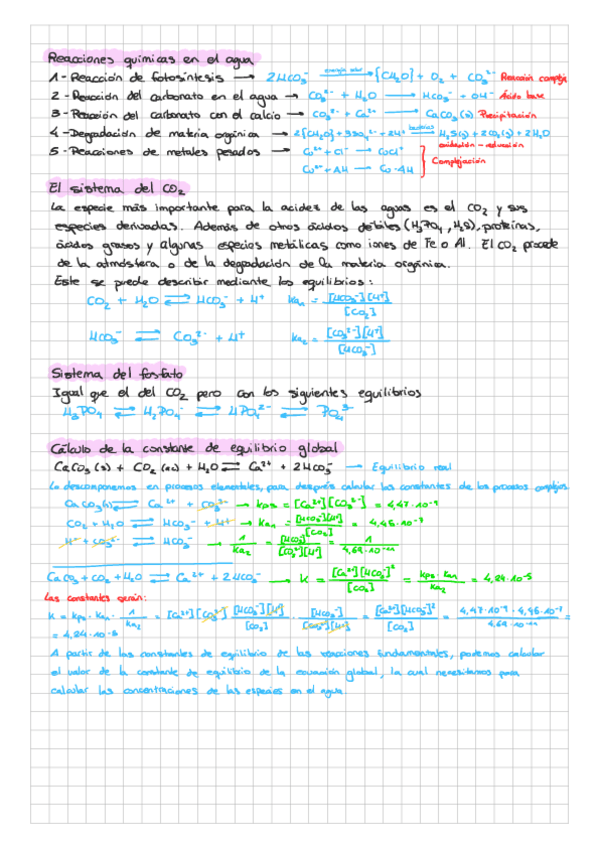 Reacciones químicas en el agua
1 - Reacción de fotosíntesis → 2HCO₃⁻ —energía solar→ [CH₂O] + O₂ + CO₃²⁻ Reacción compleja
2 - Reacción del carbonato en el agua → CO₃²⁻ + H₂O → HCO₃⁻ + OH⁻ Ácido base
3 - Reacción del carbonato con el calcio → CO₃²⁻ + Ca²⁺ → CaCO₃(s) Precipitación
4 - Degradación de materia orgánica → 2[CH₂O] + SO₄²⁻ + 2H⁺ —bacterias→ H₂S(g) + 2CO₂(g) + 2H₂O
oxidación - reducción
5 - Reacciones de metales pesados → Cu²⁺ + Cl⁻ → CuCl⁺
Complejación
Cu²⁺ + AH → Cu-AH
El sistema del CO₂
La especie más importante para la acidez de las aguas es el CO₂ y sus
especies derivadas. Además de otros ácidos débiles (H₃PO₄, H₂S), proteínas,
ácidos grasos y algunas especies metálicas como iones de Fe o Al. El CO₂ procede
de la atmósfera o de la degradación de la materia orgánica.
Este se puede describir mediante los equilibrios:
CO₂ + H₂O ⇄ HCO₃⁻ + H⁺ Ka₁ = [HCO₃⁻][H⁺] / [CO₂]
HCO₃⁻ ⇄ CO₃²⁻ + H⁺ Ka₂ = [CO₃²⁻][H⁺] / [HCO₃⁻]
Sistema del fosfato
Igual que el del CO₂ pero con los siguientes equilibrios
H₃PO₄ ⇄ H₂PO₄⁻ ⇄ HPO₄²⁻ ⇄ PO₄³⁻
Cálculo de la constante de equilibrio global
CaCO₃(s) + CO₂(aq) + H₂O ⇄ Ca²⁺ + 2HCO₃⁻ → Equilibrio real
Lo descomponemos en procesos elementales, para después calcular las constantes de los procesos complejos
CaCO₃(s) ⇄ Ca²⁺ + CO₃²⁻ → kps = [Ca²⁺][CO₃²⁻] = 4,47·10⁻⁹
CO₂ + H₂O ⇄ HCO₃⁻ + H⁺ → Ka₁ = [HCO₃⁻][H⁺] / [CO₂] = 4,45·10⁻⁷
H⁺ + CO₃²⁻ ⇄ HCO₃⁻ → 1/Ka₂ = [HCO₃⁻] / [CO₃²⁻][H⁺] = 1 / 4,69·10⁻¹¹
CaCO₃ + CO₂ + H₂O ⇄ Ca²⁺ + 2HCO₃⁻ → K = [Ca²⁺][HCO₃⁻]² / [CO₂] = kps·Ka₁ / Ka₂ = 4,24·10⁻⁵
Las constantes serán:
K = kps · Ka₁ · 1/Ka₂ = [Ca²⁺][CO₃²⁻] · [HCO₃⁻][H⁺] / [CO₂] · [HCO₃⁻] / [CO₃²⁻][H⁺] = [Ca²⁺][HCO₃⁻]² / [CO₂] = 4,47·10⁻⁹ · 4,45·10⁻⁷ / 4,69·10⁻¹¹ =
= 4,24·10⁻⁵
A partir de las constantes de equilibrio de las reacciones fundamentales, podemos calcular
el valor de la constante de equilibrio de la ecuación global, la cual necesitamos para
calcular las concentraciones de las especies en el agua.